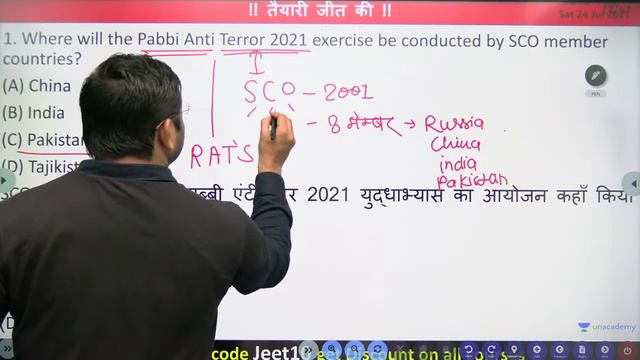 !! तैयारी जीत की !!
Sat 24 Jul
1. Where will the Pabbi Anti Terror 2021 exercise be conducted by SCO member
countries?
(A) China
(B) India
(C) Pakistan
(D) Tajikist
SCO - 2001
- 8 मेम्बर → Russia
China
india
Pakistan
RATS
PEN
SCO
2021 युद्धाभ्यास का आयोजन कहाँ किया
unacademy
code Jeet10 get Discount on all